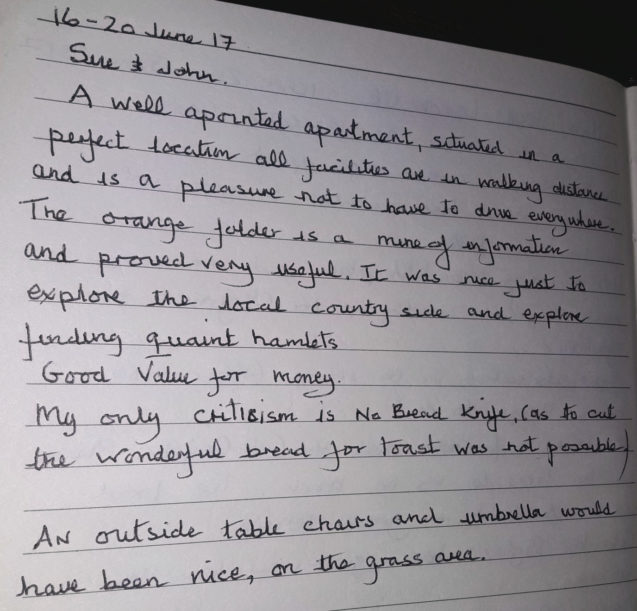 16-20 June 17
Sue & John.
A well aponted apartment, situated in a
perfect location all facilities are in walking distance
and is a pleasure not to have to drive everywhere.
The orange folder is a mine of information
and proved very useful. It was nice just to
explore the local country side and explore
finding quaint hamlets
Good Value for money.
My only critisism is No Bread Knife, (as to cut
the wonderful bread for toast was not possable)
AN outside table chairs and umbrella would
have been nice, on the grass area.